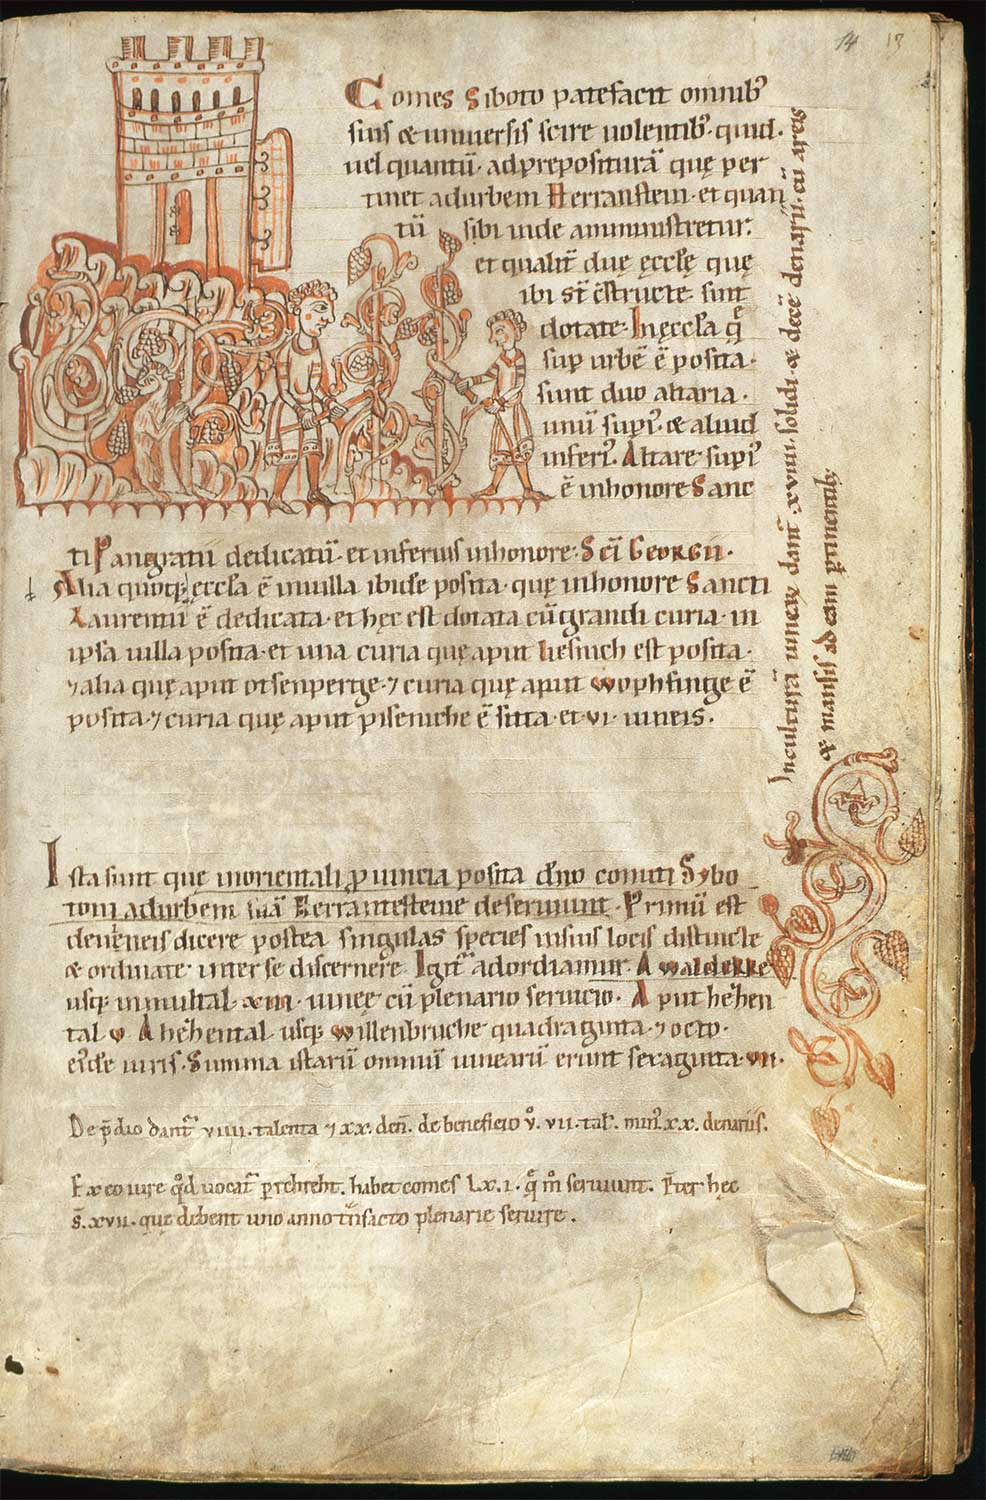 14 13
Comes Siboto patefacit omnib'
suis & universis scire volentib' · quid ·
vel quantū · ad p̲repositurā quę per
tinet ad urbem Herranstein · et quan
tū sibi inde amministretur.
et qualit̄ duę ęccłę quę
ibi st̄ c̄structę · sint
dotatę · In ęccła q̄
sup̄ urbē ē posita ·
sunt duo altaria ·
unū sup̄i' · & aliud
inferi' · Altare sup̄i'
ē in honore Sanc
ti Pangratii dedicatū · et inferius in honore · Sc̄i Georgii ·
Alia quoq; ęccła ē in villa ibidē posita · quę in honore Sancti
Laurentii ē dedicata · et hęc est dotata cū grandi curia · in
ipsa villa posita · et una curia quę aput liesinich est posita ·
⁊ alia quę aput otsenperge · ⁊ curia quę aput Wophsinge ē
posita · ⁊ curia quę aput piseniche ē sita · et · vi · vineis ·
Ista sunt quę in orientali p̱vincia posita dn̄o comiti Sybo
toni ad urbem suā Herrantesteine deserviunt · Primū est
de vineis dicere postea singulas species in suis locis distincte
& ordinate inter se discernere Igit̄ adordiamur · A Walderke
usq; in multal · xiii · vineę cū plenario servicio · Aput hehen
tal v A hehental usq; Willenbruche quadraginta · ⁊ octo ·
eisdē iuris · Summa istarū omniū vinearū erunt sexaginta · vii ·
De p̄dio dant̄ viiii · talenta ⁊ xx · den̄ · de beneficio v̊ · vii · tał · min' · xx · denariis.
Ex eo iure qd̄ vocat̄ perehreht · habet comes lx · i · q̄ m̊ serviunt · Pt̄er hęc
s̄ · xvii · quę debent uno anno tn̄sacto plenarie servire ·
In culturā vineę dant̄ · xviiii · solidi · & decē denarii · cū areis
& mansis ad eam p̱tinentib;